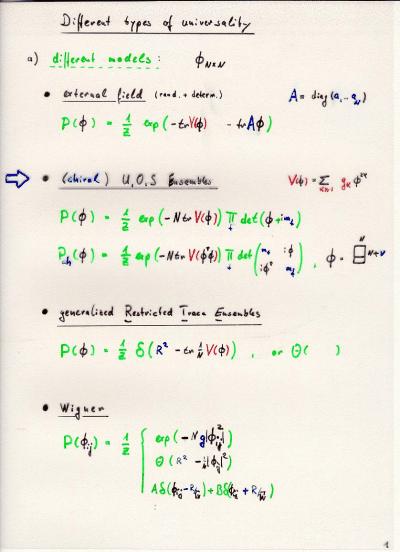 Different types of universality
a) different models: ϕ_{N×N}
• external field (rand. + determ.) A = diag (a₁ ... a_N)
P(ϕ) = 1/Z exp(-tr V(ϕ) - tr Aϕ)
⇨ • (chiral) U,O,S Ensembles V(ϕ) = Σ g_k ϕ^{2k}
P(ϕ) = 1/Z exp(-N tr V(ϕ)) Π_f det(ϕ + i m_f)
P_ch(ϕ) = 1/Z exp(-N tr V(ϕ†ϕ)) Π_f det( m_f iϕ
iϕ† m_f ) , ϕ = □ N N+ν
• generalized Restricted Trace Ensembles
P(ϕ) = 1/Z δ(R² - tr 1/N V(ϕ)) , or Θ( )
• Wigner
P(ϕ_{ij}) = 1/Z { exp(-N g|ϕ_{ij}|²)
Θ(R² - |ϕ_{ij}|²)
Aδ(ϕ_{ij} - R/√N) + Bδ(ϕ_{ij} + R/√N)
1